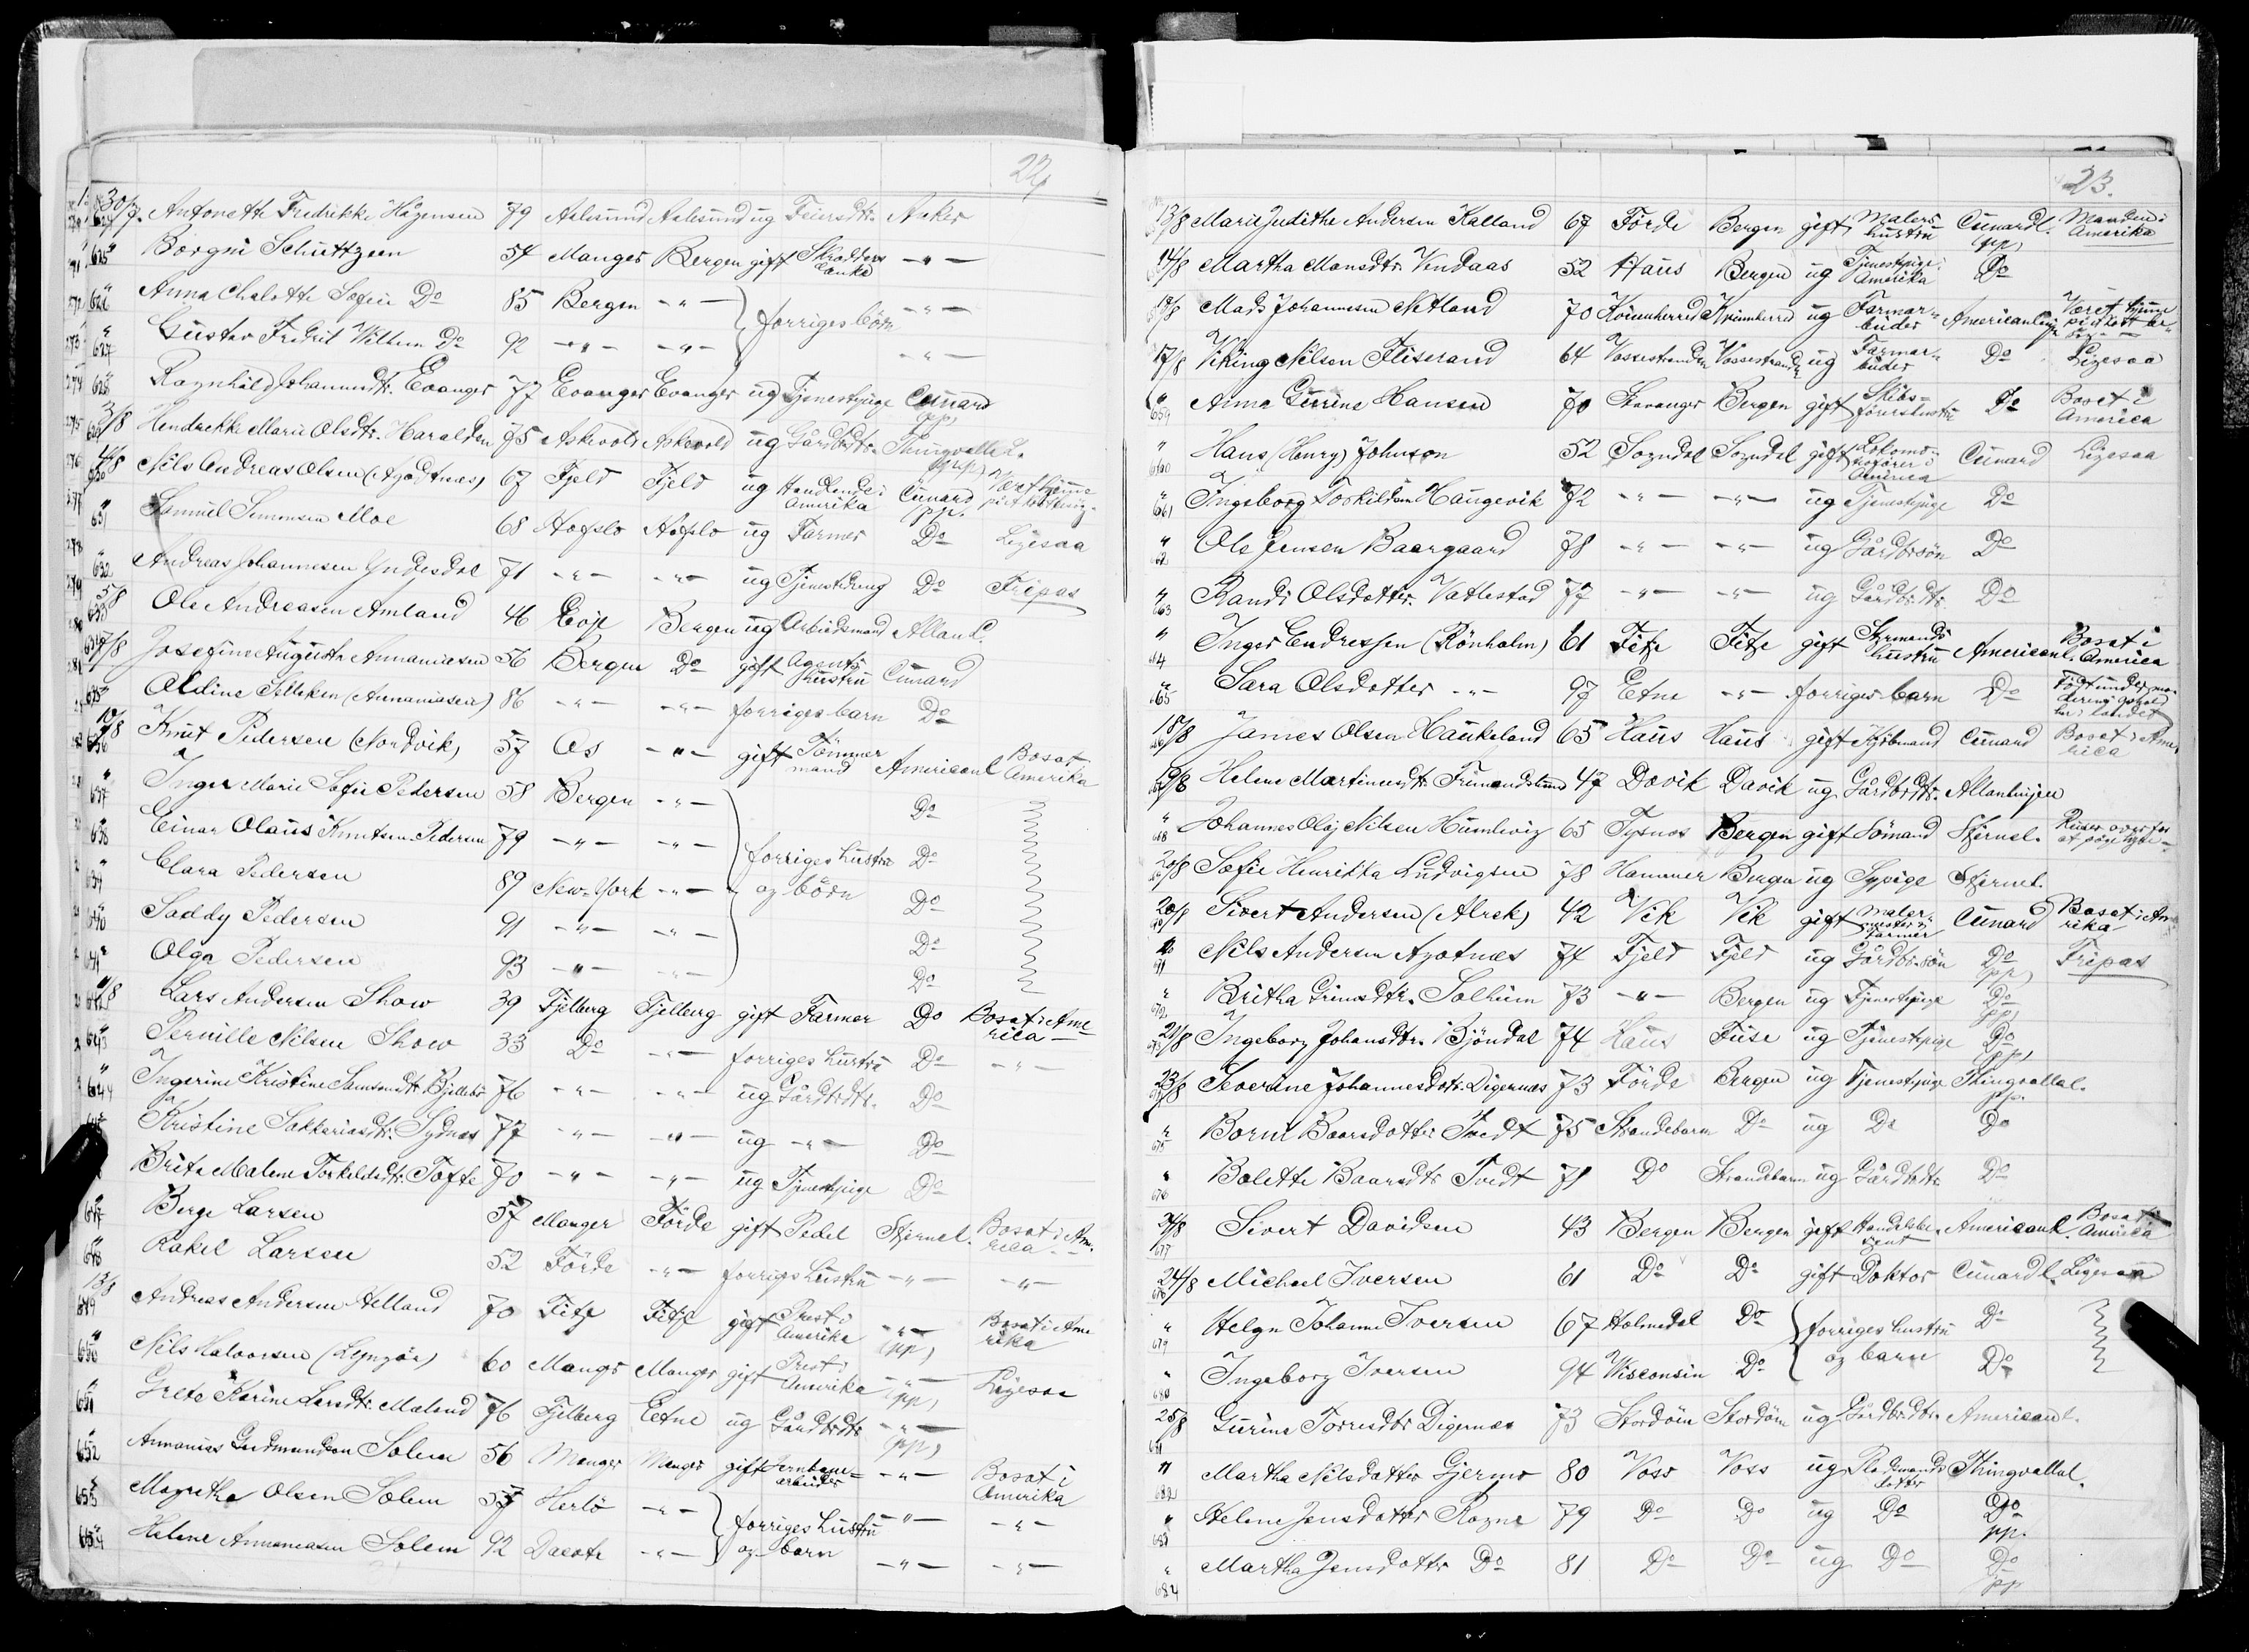 22
30/7. Antonette Fredrikke Hågensen 79 Aalesund Aalesund ug Feiersdtr. Anker
625 " Borgni Schuttzeen 54 Manger Bergen gift Skrædder Enke -"-
626 " Anna Chalotte Sofie Do 85 Bergen -"- } forriges börn -"-
627 " Gustav Fredrik Willum Do 92 -"- -"- -"-
628 " Ragnhild Johannesdtr. Evanger 77 Evanger Evanger ug Tjenestpige Cunard pp)
3/8 Hendrekke Marie Olsdtr. Haralden 75 Askvold Askvold ug Gårdbrdtr. Thingvalla L. pp)
4/8 630 Nils Andreas Olsen (Agodtnæs) 67 Fjeld Fjeld ug Handlende i Amerika Cunard pp. Været hjemme på
631 " Samuel Simonsen Moe 68 Hafslo Hafslo ug Farmer Do Ligesaa
632 " Andreas Johannesen Yndesdal 71 -"- -"- ug Tjenestdreng Do Fripas
5/8 633 Ole Andreasen Amland 46 Bergen ug Arbeidsmand Allan L.
634 7/8 Josefine Augusta Annaniasen 56 Bergen Do gift Agents hustru Cunard
635 Aldine (Annaniasen) 86 -"- -"- forriges barn Do
10/8 636 Knut Pedersen (Nordvik) 57 Os -"- gift Tömmermand Americanl Bosat Amerika
637 " Inger Marie Sofie Pedersen 58 Bergen -"- Do
638 " Einar Olaus Knutsen Pedersen 79 -"- -"- } forriges hustru Do
639 " Clara Pedersen 89 New-York -"- og börn Do
640 " Saddy Pedersen 91 -"- -"- Do
641 " Olga Pedersen 93 -"- -"- Do
11/8 642 Lars Andersen Show 39 Fjelberg Fjelberg gift Farmer Do Bosat i Amerika
643 Pernille Nilsen Show 33 Do -"- forriges hustru Do -"-
644 " Ingerine Kristine Samsonsdtr. Bjelleb 76 -"- -"- ug Gårdbrdtr. Do
Kristine Sakkariasdtr. Sydnæs 77 -"- -"- ug -"- Do
Brita Malene Torkeldsdtr. Tofte 70 -"- -"- ug Tjenestpige Do
647 Berge Larsen 57 Manger Förde gift Pedel Stjernel. Bosat i Amerika
648 " Rakel Larsen 52 Förde -"- forriges hustru -"- -"-
13/8 649 Andreas Andersen Helland 70 Fitje Fitje gift Prest i Amerika -"- pp) Bosat i Amerika
650 " Nils Halvorsen (Lyngör) 60 Manger Manger gift Prest i Amerika -"- pp) Ligesaa
651 " Grete Karine Larsdtr. Mæland 76 Fjelberg Eetne ug Gårdbrdtr. -"- pp)
652 " Annanias Gudmundsen Solem 56 Manger Manger gift Jernbanearbeider -"- Bosat i Amerika
653 " Magretha Olsen Solem 57 Herlö -"- } forriges hustru -"- -"-
654 " Helene Annaniasen Solem 92 Dacota -"- og barn -"- -"-
23.
13/8 Marie Judithe Andersen Kalland 67 Förde Bergen gift Malers hustru Cunardl. pp) Manden i Amerika
14/8 Martha Monsdtr. Vendaas 52 Haus Bergen ug Tjenestpige i Amerika Do
15/8 Mads Johannesen Netland 70 Kvinnherred Kvinnherred ug Farmarbeider Americanlinje Været hjemme på kort besög
17/8 Viking Nilsen Fliserand 64 Vossestranden Vossestranden ug Farmarbeider Do Ligesaa
659 " Anna Gurine Hansen 70 Stavanger Bergen gift Skibsförershustru Do Bosat i America
660 " Hans (Henry) Johnson 52 Sogndal Sogndal gift Lokomotivförer i America Cunard Ligesaa
661 " Ingeborg Torkildsen Haugevik 72 -"- -"- ug Tjenestpige Do
62 " Ole Jensen Baargaard 78 -"- -"- ug Gårdbrsön Do
63 " Randi Olsdotter Vatlestad 77 -"- -"- ug Gårdbrdtr. Do
64 " Inger Endressen (Rönholm) 61 Fitje Fitje gift Styrmands hustru Americanl. Bosat i America
65 " Sara Olsdotter -"- 97 Etne -"- forriges barn Do Födt under moderens ophold her i landet
18/8 James Olsen Haukeland 65 Haus Haus gift Kjöbmand Cunard Bosat i Amerika
19/8 Helene Martinusdtr. 47 Davik Davik ug Gårdbrdtr. Allanlinjen
668 " Johannes Olaj Nilsen Humlevig 65 Tysnæs Bergen gift Sömand Stjernel. Reiser over for at söge hyre
20/8 Sofie Henrikka Ludvigsen 78 Hammer Bergen ug Sypige Stjernel.
20/8 Sivert Andersen (Alrek) 42 Vik Vik gift Malermester & Farmer Cunard Bosat i Amerika
671 Nils Andersen Agotnæs 74 Fjeld Fjeld ug Gårdbrsön Do pp) Fripas
672 " Britha Grimsdtr. Solheim 73 -"- Bergen ug Tjenestpige Do pp)
21/8 Ingeborg Johansdtr. Bjöndal 74 Haus Fuse ug Tjenestpige Do pp)
23/8 Severine Johannesdotr. Digernæs 73 Förde Bergen ug Tjenestpige Thingvallal. pp.
675 " Borni Baarsdotter Tvedt 75 Strandebarm Do ug Do Do
676 " Bolette Baarsdtr Tvedt 71 Do Strandebarm ug Gårdbdtr Do
24/8 677 Sivert Davidsen 43 Bergen Bergen gift Handelsbetjent Americanl. Bosat i America
24/8 678 Michael Iversen 61 Do Do gift Doktor Cunardl. Ligesaa
679 " Helga Johanne Iversen 67 Holmedal Do } forriges hustru Do
680 " Ingeborg Iversen 94 Wisconsin Do og barn Do
25/8 681 Gurine Torresdtr Digernæs 73 Stordöen Stordöen ug Gårdbrdtr. Americanl.
682 " Martha Nilsdatter Gjermo 80 Voss Voss ug Pladsmandsdotter Thingvallal.
683 " Helene Jensdatter Rogne 79 Do Do ug Do Do pp.
684 " Martha Jensdotter Do 81 Do Do ug Do Do pp